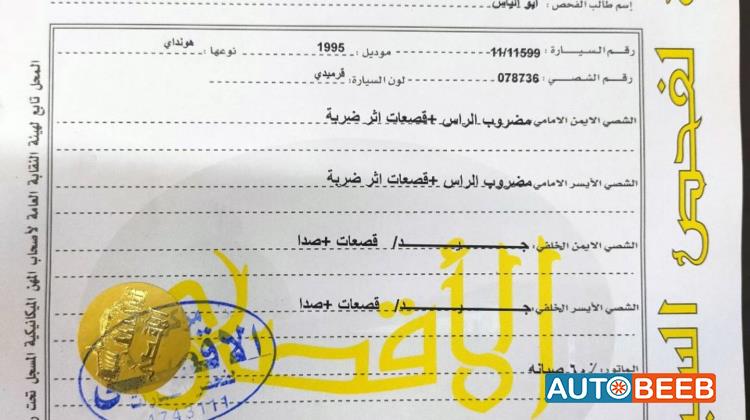 إسم طالب الفحص: ابو الياس
رقم السيارة: 11/11599 موديل: 1995 نوعها: هونداي
رقم الشصي: 078736 لون السيارة: قرميدي
الشصي الايمن الامامي: مضروب الراس +قصعات اثر ضربة
الشصي الأيسر الامامي: مضروب الراس +قصعات اثر ضربة
الشصي الايمن الخلفي: جـــــرـــــد/ قصعات +صدا
الشصي الأيسر الخلفي: جـــــرـــــد/ قصعات +صدا
الماتور: ٦٠٪ صيانه
المحل تابع لهيئة النقابة العامة لأصحاب المهن الميكانيكية المسجل تحت
لفحص
الأقصى
AUTOBEEB.COM